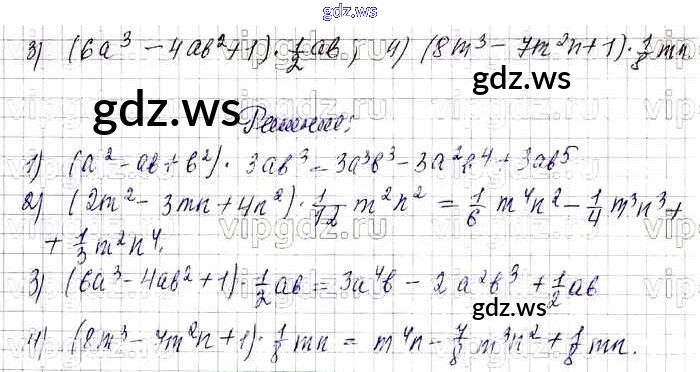 gdz.ws
3) (6a³ – 4ab² + 1) · 1/2 ab; 4) (8m³ – 7m²n + 1) · 1/8 mn
gdz.ws
Решение:
1) (a² – ab + b²) · 3ab³ = 3a³b³ – 3a²b⁴ + 3ab⁵
2) (2m² – 3mn + 4n²) · 1/12 m²n² = 1/6 m⁴n² – 1/4 m³n³ +
+ 1/3 m²n⁴.
3) (6a³ – 4ab² + 1) · 1/2 ab = 3a⁴b – 2a²b³ + 1/2 ab
gdz.ws
4) (8m³ – 7m²n + 1) · 1/8 mn = m⁴n – 7/8 m³n² + 1/8 mn.
gdz.ws